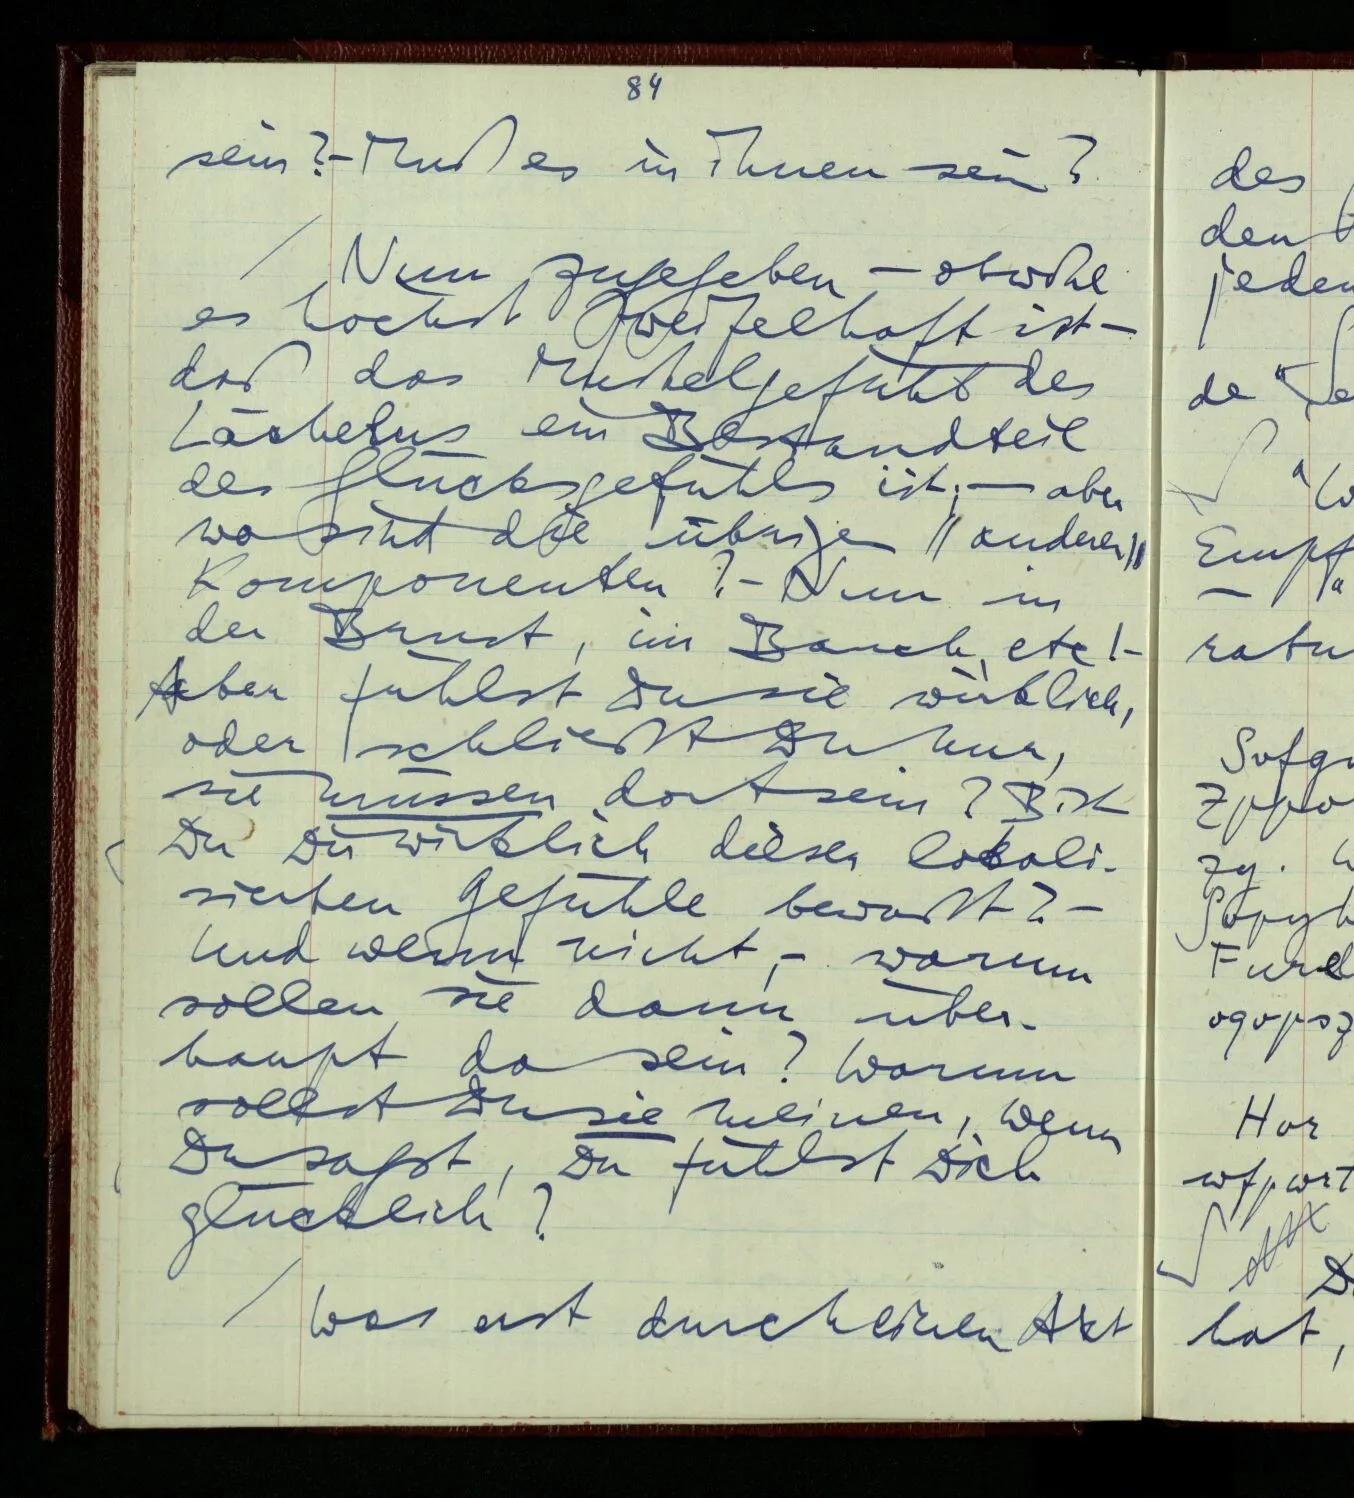 84
sein? – Muß es in ihnen sein?
/ Nun zugegeben – obwohl
es höchst zweifelhaft ist –
daß das Muskelgefühl des
Lächelns ein Bestandteil
des Glücksgefühls ist; – aber
wo sind die übrigen // anderen //
Komponenten? – Nun in
der Brust, im Bauch, etc! –
Aber fühlst Du sie wirklich,
oder schließt Du nur,
sie müssen dort sein? Bist
Du Dir wirklich dieser lokali-
sierten Gefühle bewußt? –
Und wenn nicht, – warum
sollen sie dann über-
haupt da sein? Warum
sollst Du sie meinen, wenn
Du sagst, Du fühlst Dich
glücklich?
/ Was erst durch einen Akt
des
den
jeden
de
Empf
ratu
Sofgr
Zppo
zg.
Furd
Hor
wfpwrt
hat,